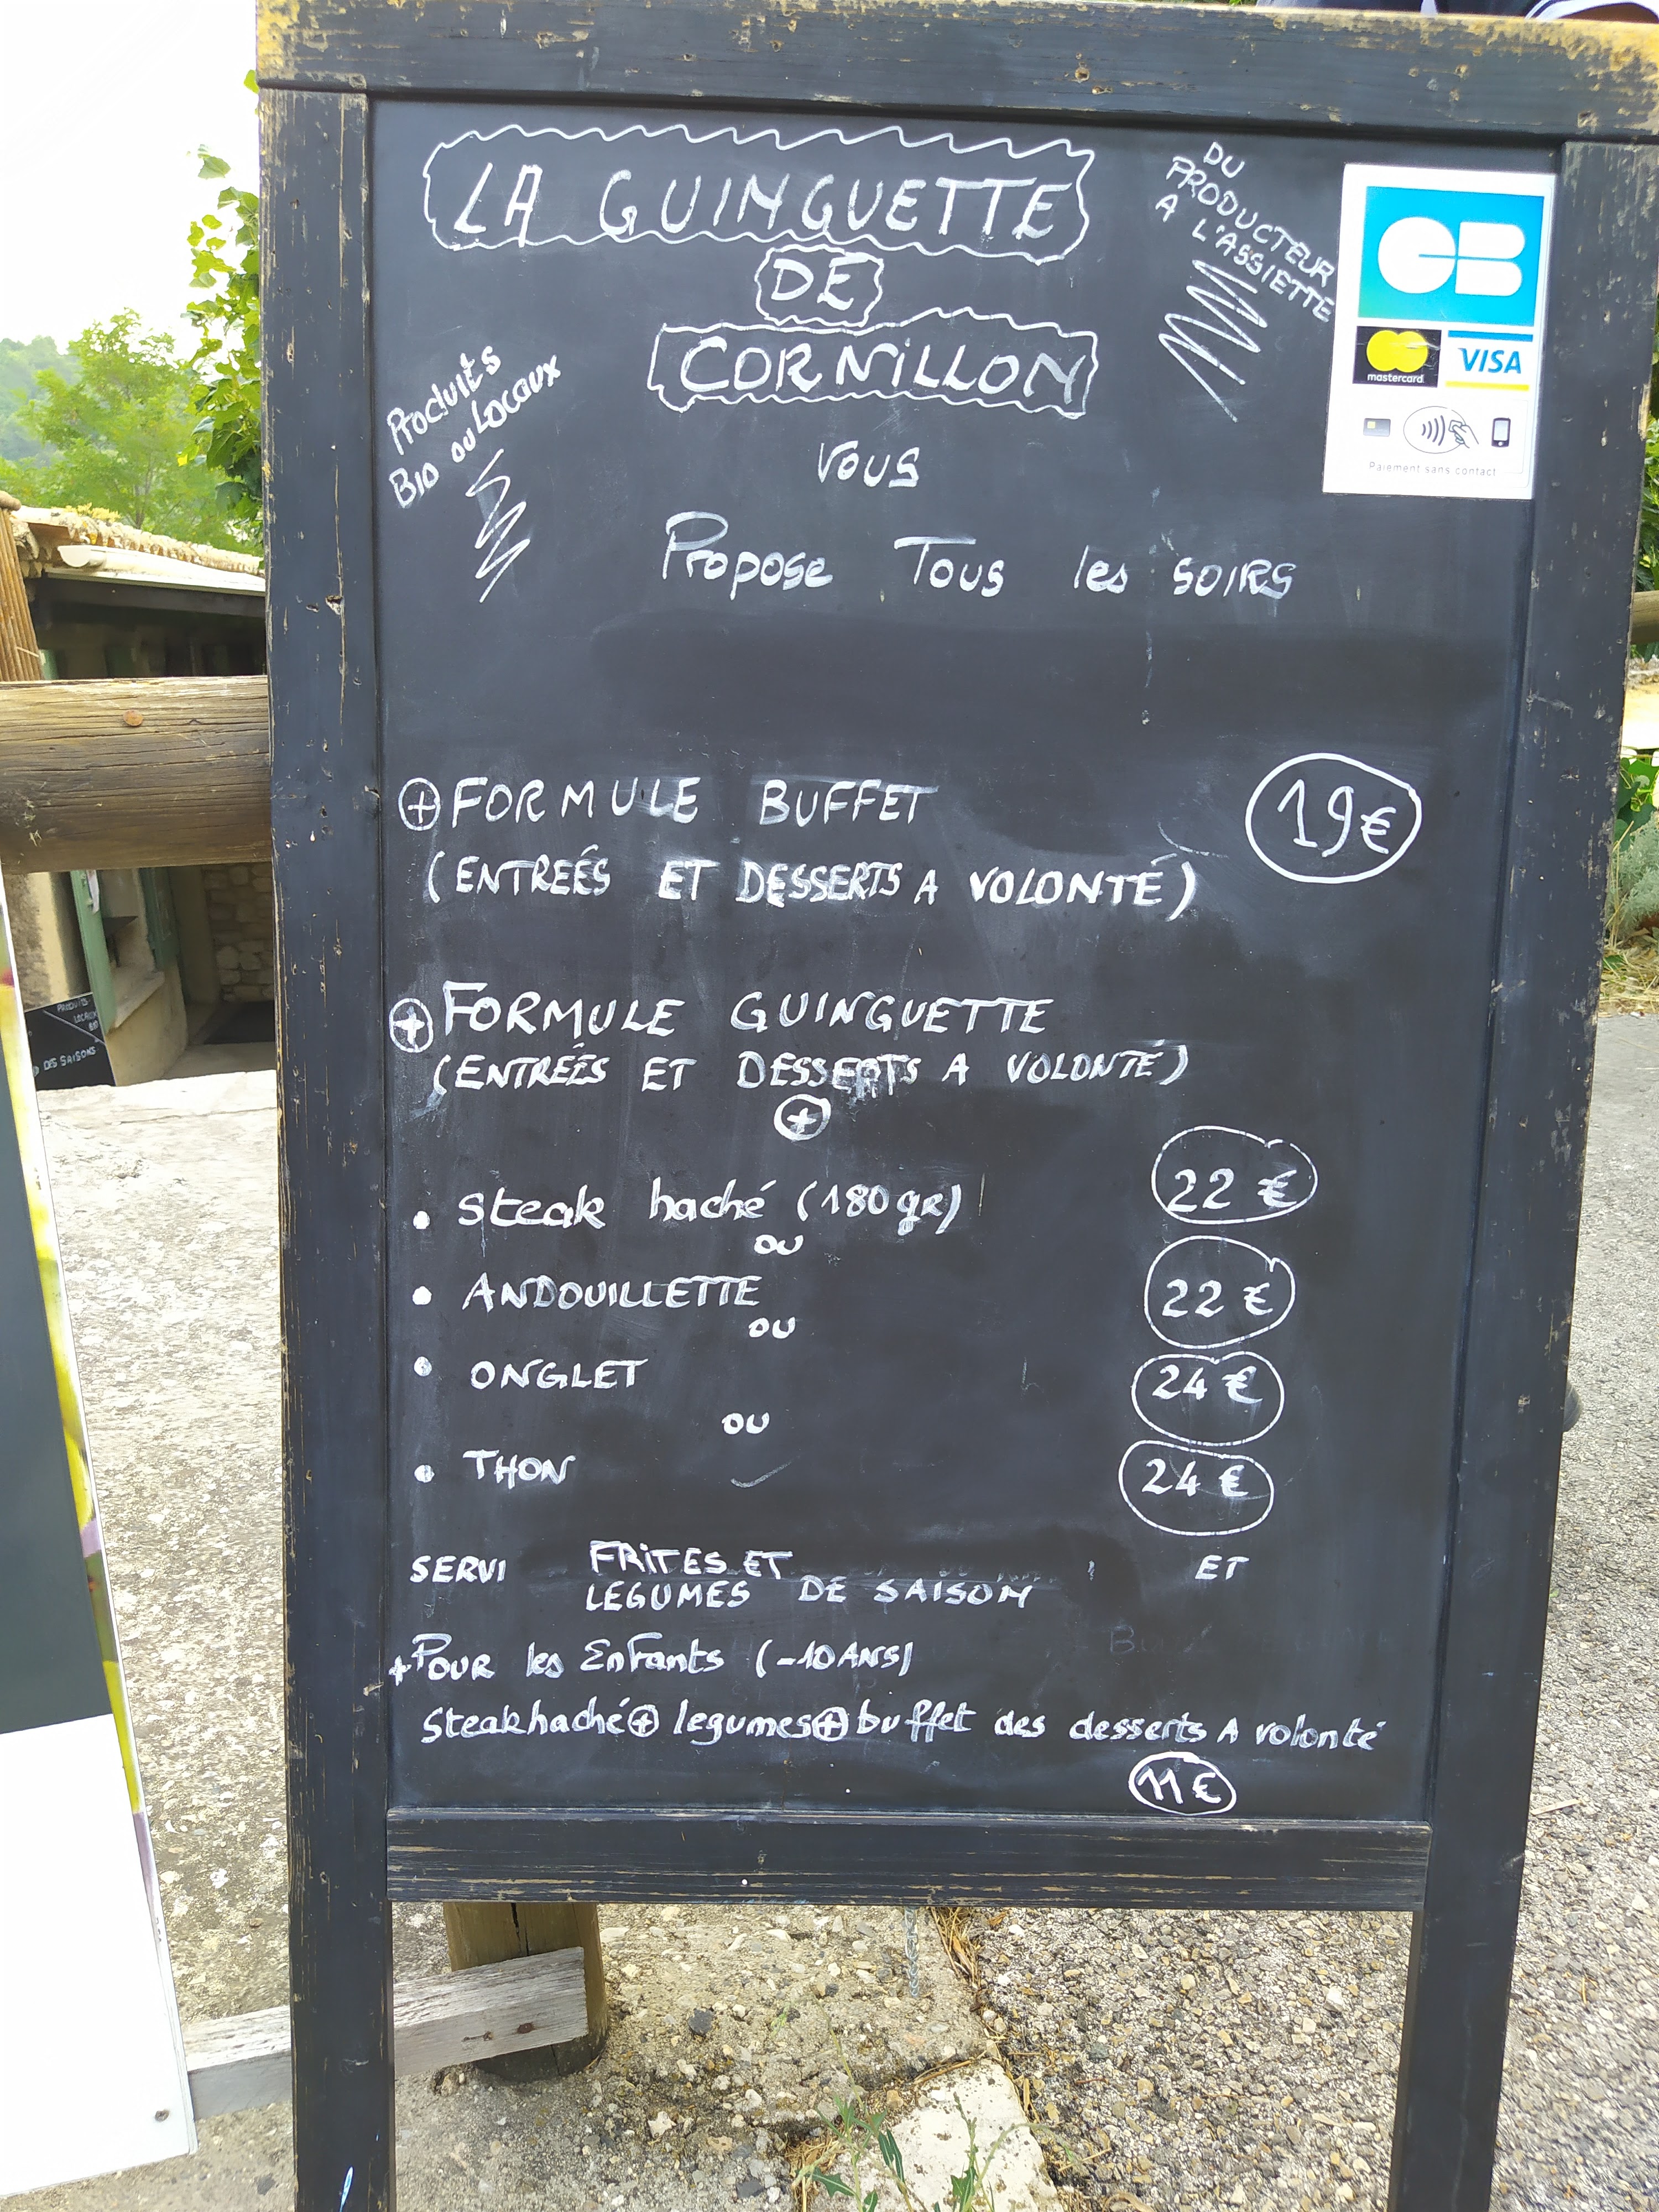 LA GUINGUETTE
DE
CORNILLON
DU
PRODUCTEUR
A L'ASSIETTE
CB
mastercard
VISA
Paiement sans contact
Produits
Bio ou Locaux
VOUS
Propose Tous les soirs
+ FORMULE BUFFET
19€
(ENTREÉS ET DESSERTS A VOLONTÉ)
+ FORMULE GUINGUETTE
(ENTRÉES ET DESSERTS A VOLONTÉ)
+
• steak haché (180gr)
22 €
ou
• ANDOUILLETTE
22 €
OU
• ONGLET
24 €
OU
• THON
24 €
SERVI FRITES ET ET
LEGUMES DE SAISON
+ Pour les Enfants (-10 ANS)
Steak haché + legumes + buffet des desserts A volonté
11€
PRODUITS
LOCAUX
BIO
DES SAISONS